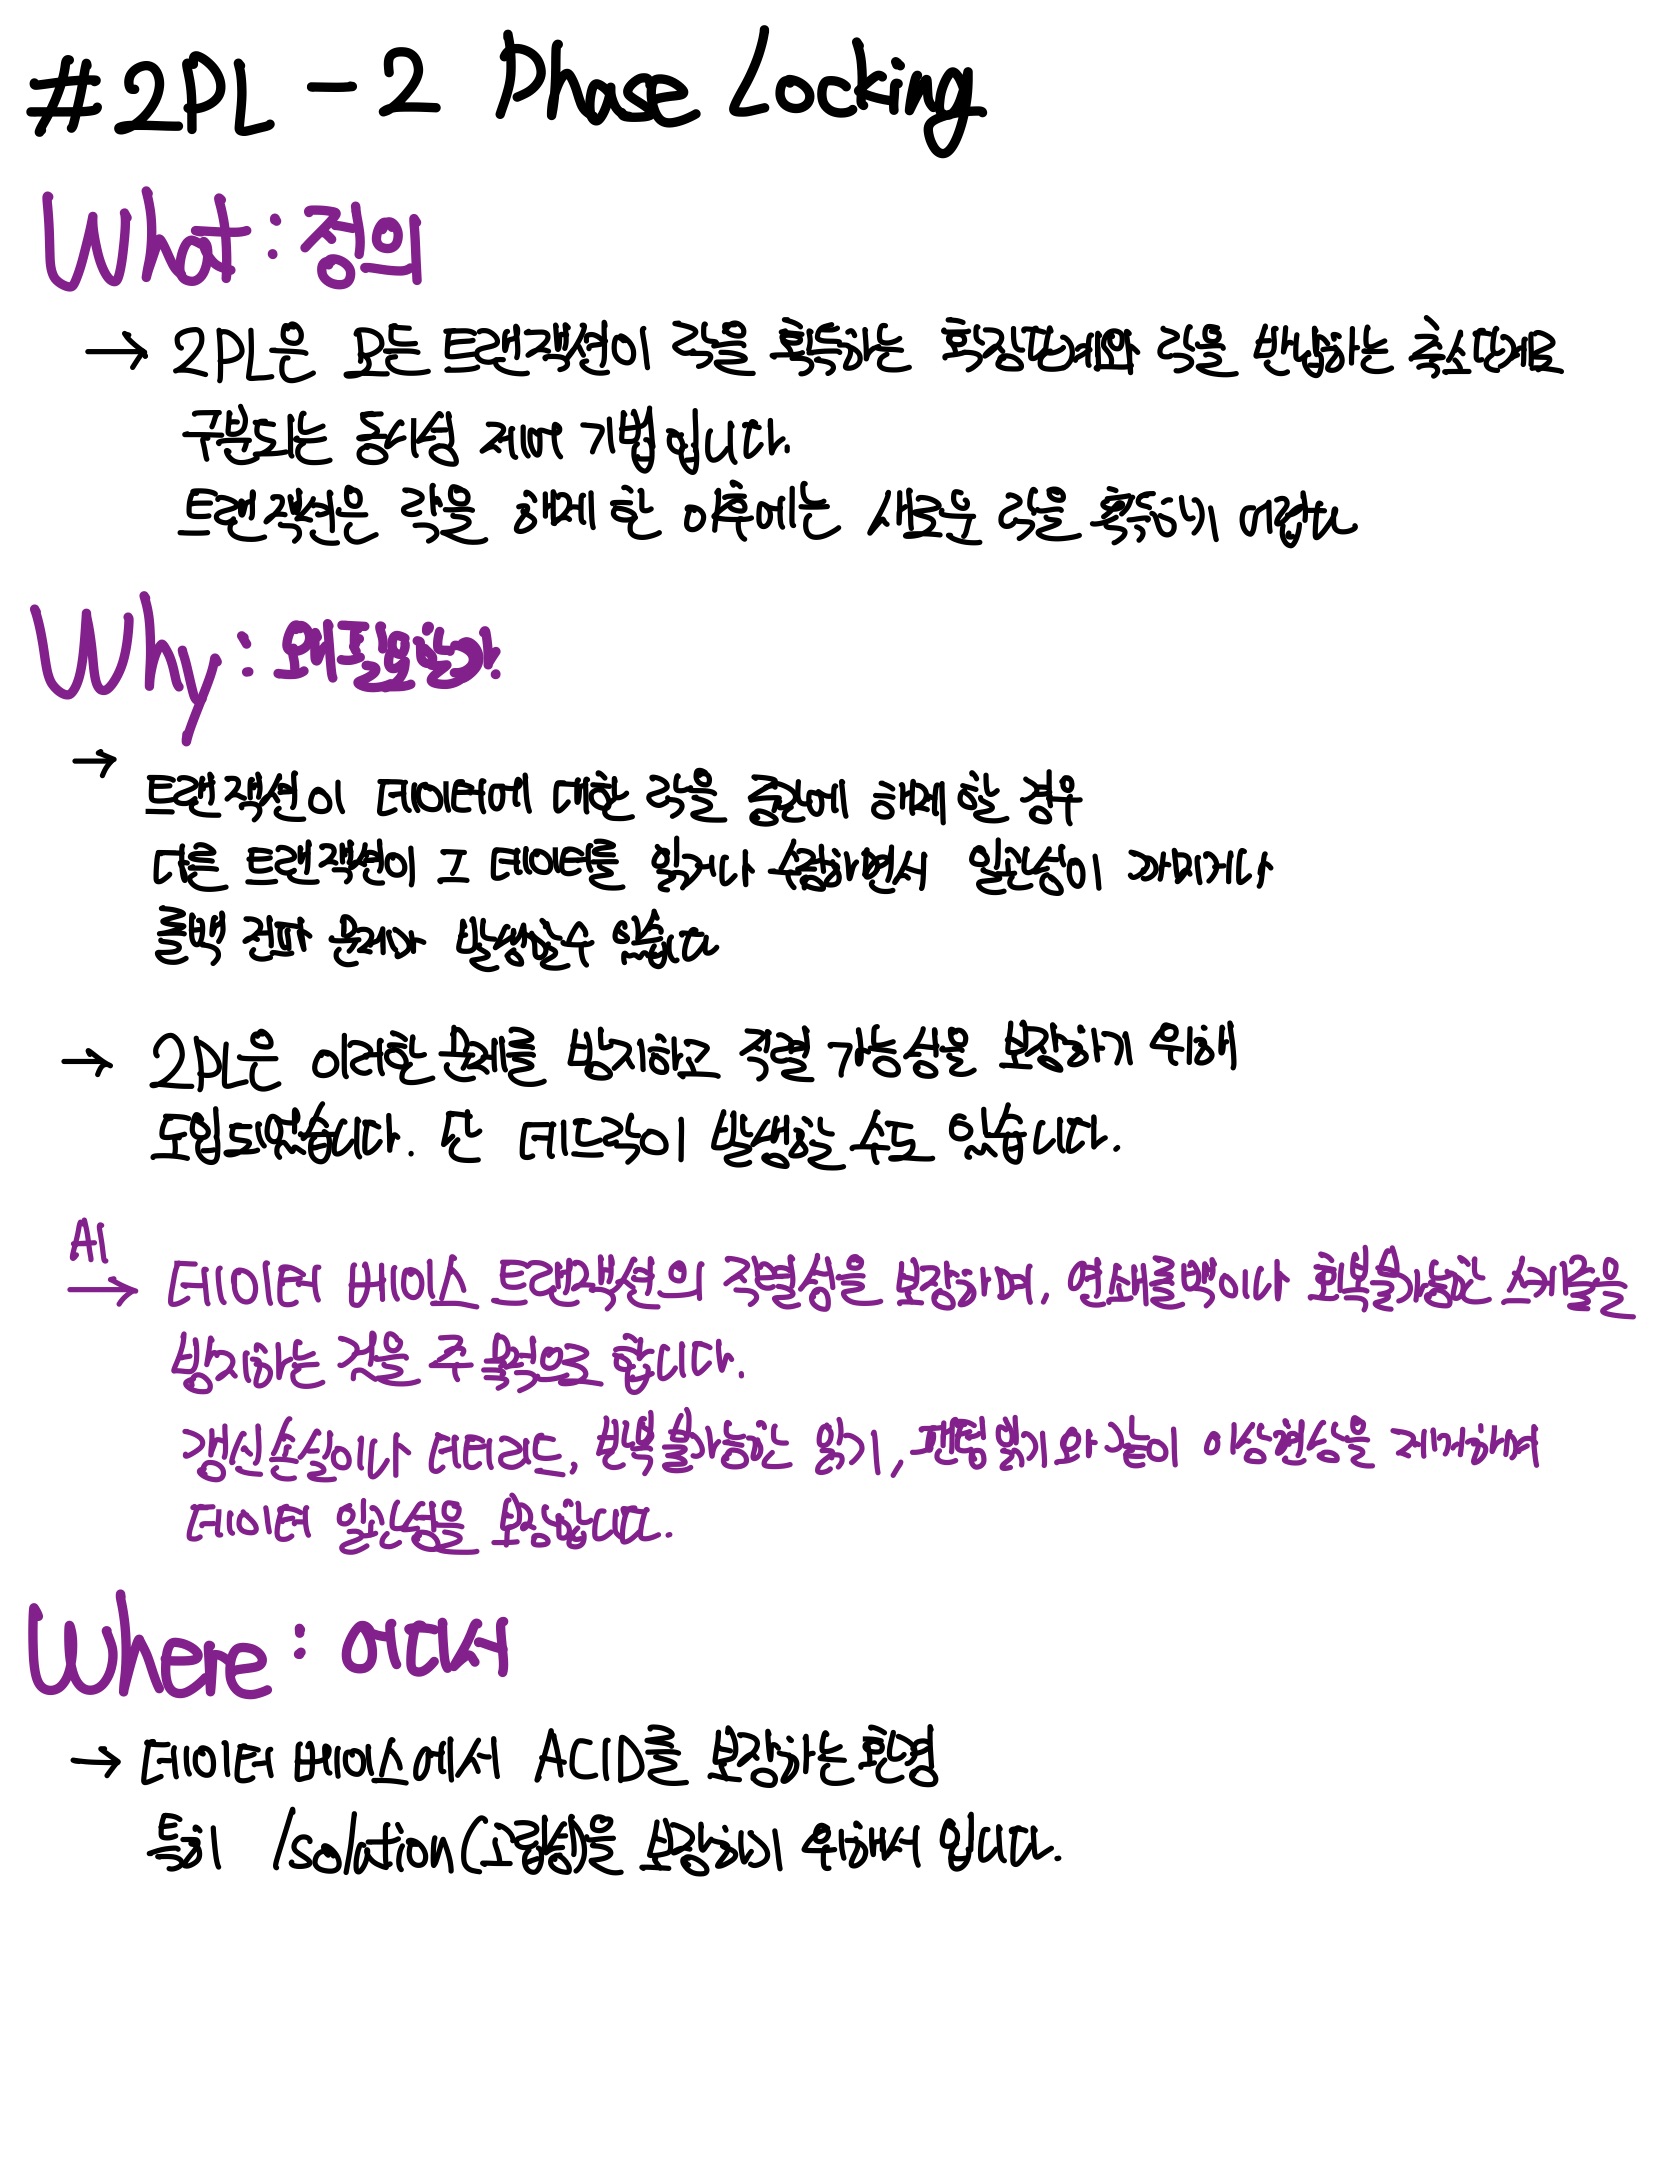 #2PL - 2 Phase Locking
What : 정의
→ 2PL은 모든 트랜잭션이 락을 획득하는 확장단계와 락을 반납하는 축소단계로
구분되는 동시성 제어 기법입니다.
트랜잭션은 락을 해제 한 이후에는 새로운 락을 획득하기 어렵다
Why : 왜 필요한가
→
트랜잭션이 데이터에 대한 락을 중간에 해제 할 경우
다른 트랜잭션이 그 데이터를 읽거나 수정하면서 일관성이 깨지거나
롤백 전파 문제가 발생할수 있습니다
→ 2PL은 이러한 문제를 방지하고 직렬 가능성을 보장하기 위해
도입되었습니다. 단 데드락이 발생할 수도 있습니다.
AI
→ 데이터 베이스 트랜잭션의 직렬성을 보장하며, 연쇄롤백이나 회복불가능한 스케줄을
방지하는 것을 주 목적으로 합니다.
갱신손실이나 더티리드, 반복 불가능한 읽기, 팬텀 읽기와 같이 이상현상을 제거하여
데이터 일관성을 보장합니다.
Where : 어디서
→ 데이터 베이스에서 ACID를 보장하는 환경
특히 Isolation(고립성)을 보장하기 위해서 입니다.